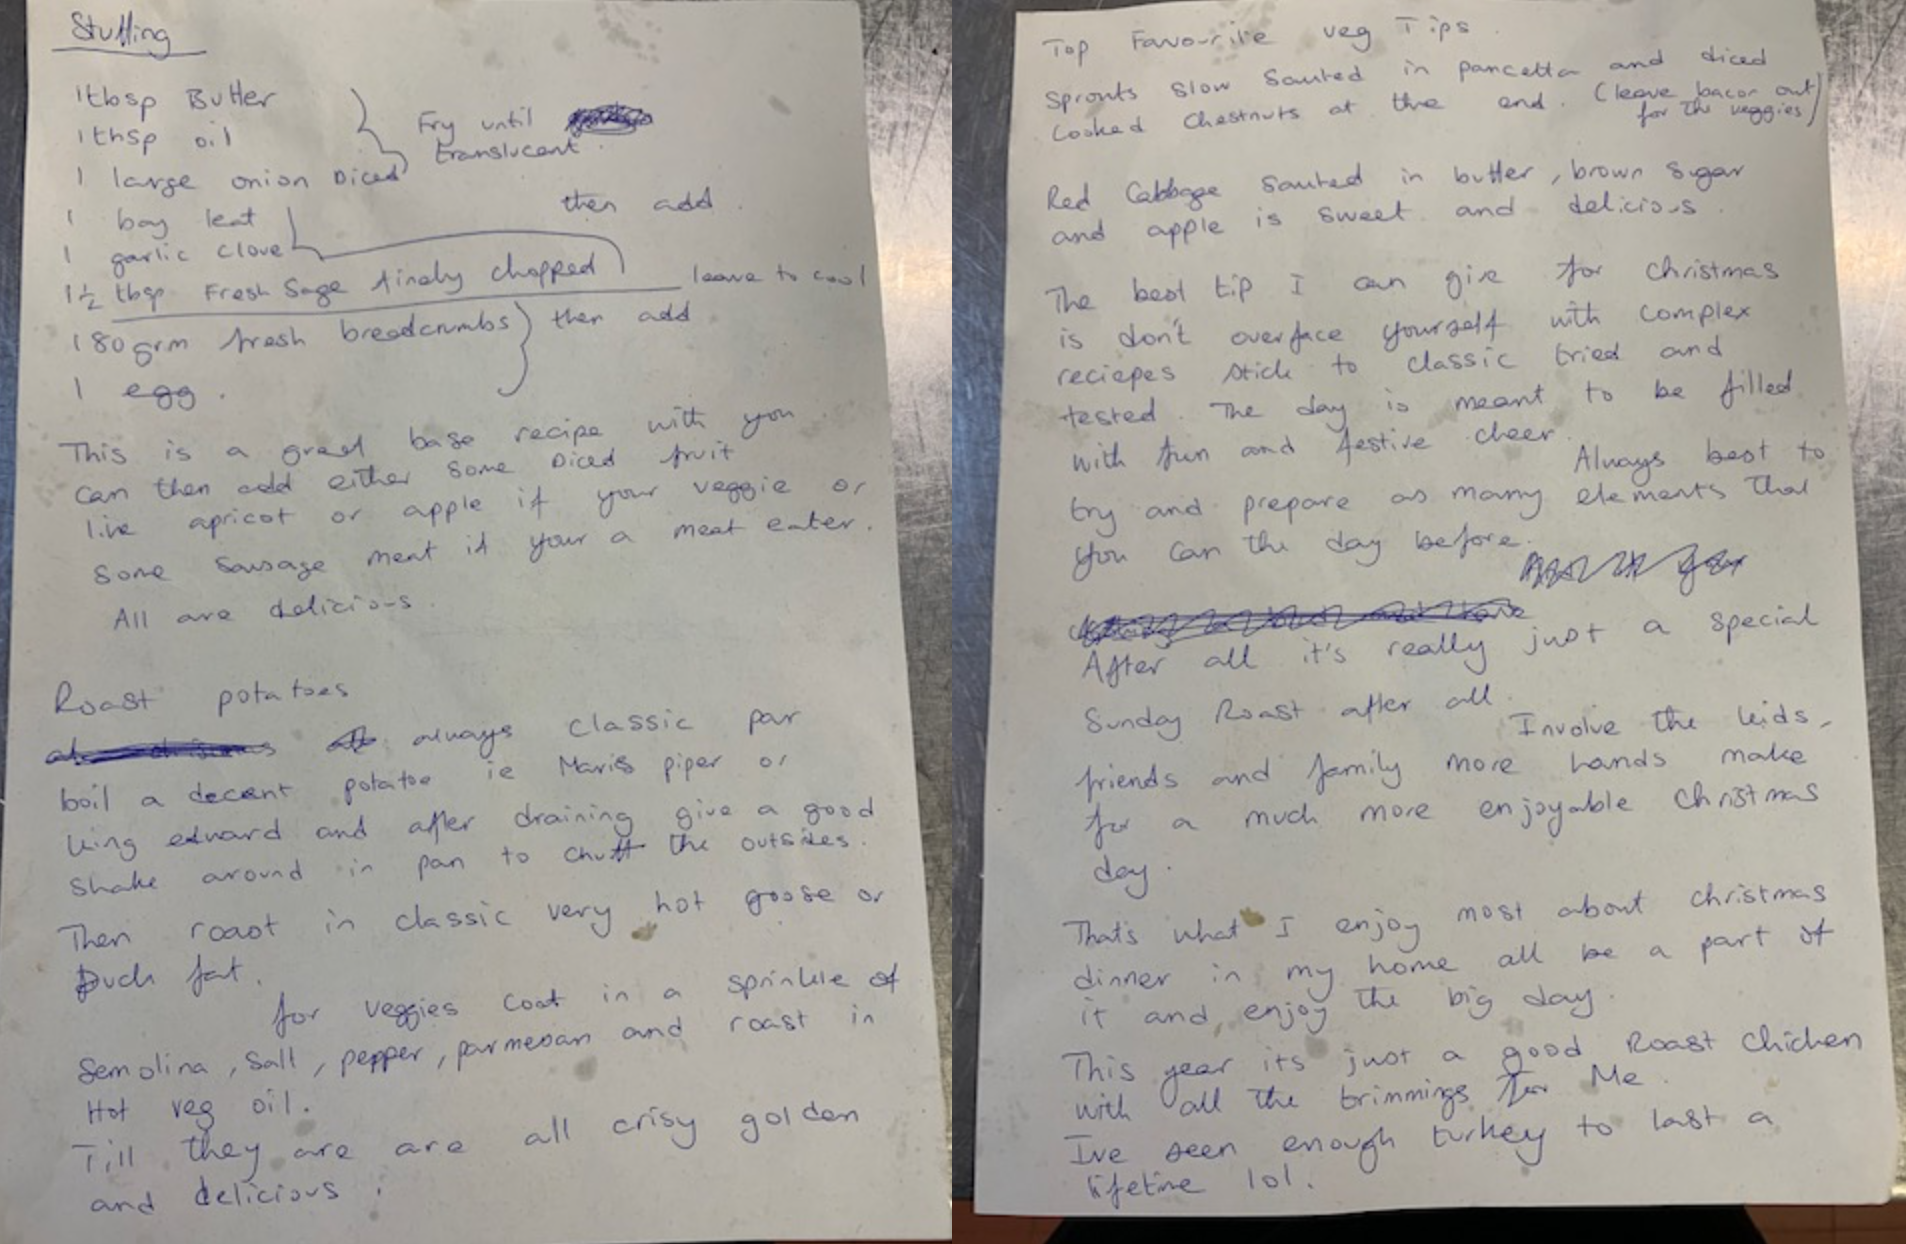 Stuffing
1 tbsp Butter
1 tbsp oil
1 large onion Diced
Fry until
translucent.
then add.
1 bay leaf
1 garlic clove
1½ tbsp Fresh Sage finely chopped
leave to cool
180 grm fresh breadcrumbs
then add
1 egg.
This is a great base recipe with you
can then add either some Diced fruit
like apricot or apple if your veggie or
some sausage meat if your a meat eater.
All are delicious.
Roast potatoes
always classic par
boil a decent potatoe ie Maris piper or
king edward and after draining give a good
shake around in pan to chuff the outsides.
Then roast in classic very hot goose or
Duck fat.
for veggies coat in a sprinkle of
Semolina, Salt, pepper, parmesan and roast in
Hot veg oil.
Till they are are all crisy golden
and delicious.
Top Favourite veg Tips.
Sprouts slow sauted in pancetta and diced
cooked chestnuts at the end. (leave bacon out
for the veggies)
Red Cabbage sauted in butter, brown sugar
and apple is sweet and delicious.
The best tip I can give for christmas
is don't overface yourself with complex
reciepes stick to classic tried and
tested. The day is meant to be filled
with fun and festive cheer.
Always best to
try and prepare as many elements that
you can the day before.
After all it's really just a special
Sunday Roast after all.
Involve the kids,
friends and family more hands make
for a much more enjoyable christmas
day.
That's what I enjoy most about christmas
dinner in my home all be a part of
it and enjoy the big day.
This year its just a good Roast chicken
with all the trimmings for Me.
I've seen enough turkey to last a
lifetime lol.